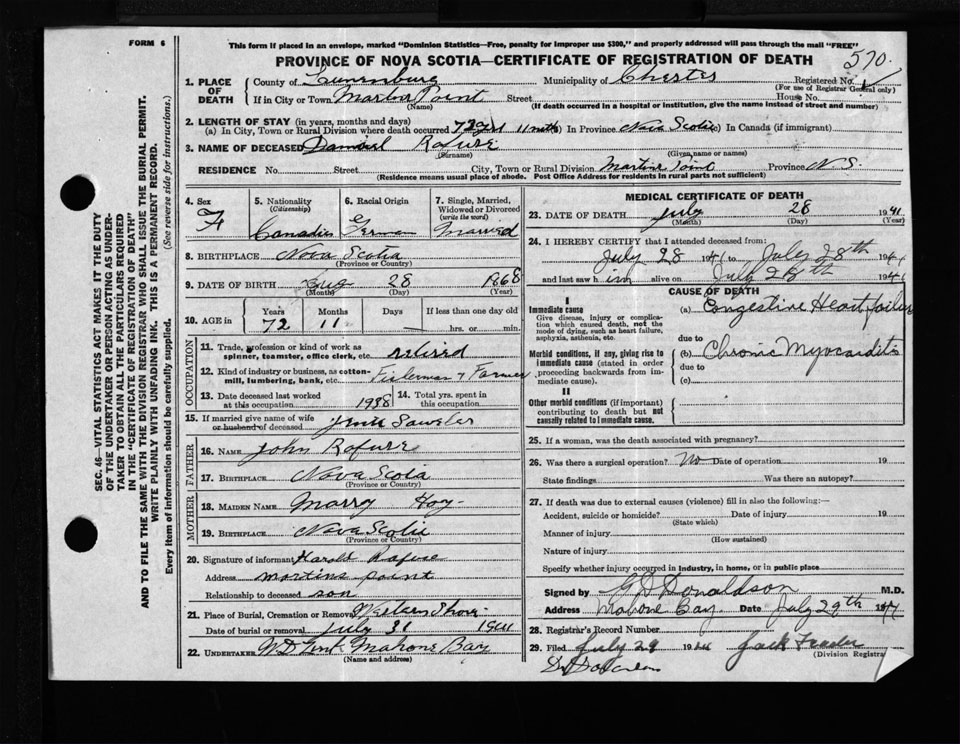 FORM 6
This form if placed in an envelope, marked "Dominion Statistics—Free, penalty for improper use $300," and properly addressed will pass through the mail "FREE"
PROVINCE OF NOVA SCOTIA—CERTIFICATE OF REGISTRATION OF DEATH
570.
1. PLACE OF DEATH County of Lunenburg Municipality of Chester Registered No.
(For use of Registrar General only)
If in City or Town Point Street House No.
(Name) (If death occurred in a hospital or institution, give the name instead of street and number)
2. LENGTH OF STAY (in years, months and days)
(a) In City, Town or Rural Division where death occurred 72 11 In Province Nova Scotia In Canada (if immigrant)
3. NAME OF DECEASED Rafuse
(Surname) (Given name or names)
RESIDENCE No. Street City, Town or Rural Division Point Province N.S.
(Residence means usual place of abode. Post Office Address for residents in rural parts not sufficient)
4. Sex
5. Nationality (Citizenship)
6. Racial Origin German
7. Single, Married, Widowed or Divorced (write the word) Married
8. BIRTHPLACE Nova Scotia
(Province or Country)
9. DATE OF BIRTH Aug 28 1868
(Month) (Day) (Year)
10. AGE in Years Months Days If less than one day old
72 11 hrs. or min.
OCCUPATION
11. Trade, profession or kind of work as spinner, teamster, office clerk, etc. retired
12. Kind of industry or business, as cotton-mill, lumbering, bank, etc. Fisherman & Farmer
13. Date deceased last worked at this occupation 1938 14. Total yrs. spent in this occupation
15. If married give name of wife or husband of deceased
FATHER
16. NAME John Rafuse
17. BIRTHPLACE Nova Scotia
(Province or Country)
MOTHER
18. MAIDEN NAME Marry
19. BIRTHPLACE Nova Scotia
(Province or Country)
20. Signature of informant Harold Rafuse
Address Martins point
Relationship to deceased son
21. Place of Burial, Cremation or Removal Western Shore
Date of burial or removal July 31 1941
22. UNDERTAKER Mahone Bay
(Name and address)
MEDICAL CERTIFICATE OF DEATH
23. DATE OF DEATH July 28 1941
(Month) (Day)
24. I HEREBY CERTIFY that I attended deceased from:
July 28 1941 to July 28th 1941
and last saw him alive on July 28th 1941
CAUSE OF DEATH
I
Immediate cause
Give disease, injury or complication which caused death, not the mode of dying, such as heart failure, asphyxia, asthenia, etc.
(a) Congestive Heart failure
due to
Morbid conditions, if any, giving rise to immediate cause (stated in order proceeding backwards from immediate cause).
(b) Chronic Myocarditis
due to
(c)
II
Other morbid conditions (if important) contributing to death but not causally related to immediate cause.
25. If a woman, was the death associated with pregnancy?
26. Was there a surgical operation? No Date of operation 19
State findings Was there an autopsy?
27. If death was due to external causes (violence) fill in also the following:—
Accident, suicide or homicide? Date of injury 19
(State which)
Manner of injury
(How sustained)
Nature of injury
Specify whether injury occurred in industry, in home, or in public place
Signed by Donaldson M.D.
Address Mahone Bay Date July 29th 1941
28. Registrar's Record Number
29. Filed July 29 Jack
(Division Registrar
SEC. 46—VITAL STATISTICS ACT MAKES IT THE DUTY
OF THE UNDERTAKER OR PERSON ACTING AS UNDERTAKER TO OBTAIN ALL THE PARTICULARS REQUIRED
IN THE "CERTIFICATE OF REGISTRATION OF DEATH"
AND TO FILE THE SAME WITH THE DIVISION REGISTRAR WHO SHALL ISSUE THE BURIAL PERMIT.
WRITE PLAINLY WITH UNFADING INK. THIS IS A PERMANENT RECORD.
Every item of information should be carefully supplied. (See reverse side for instructions.)